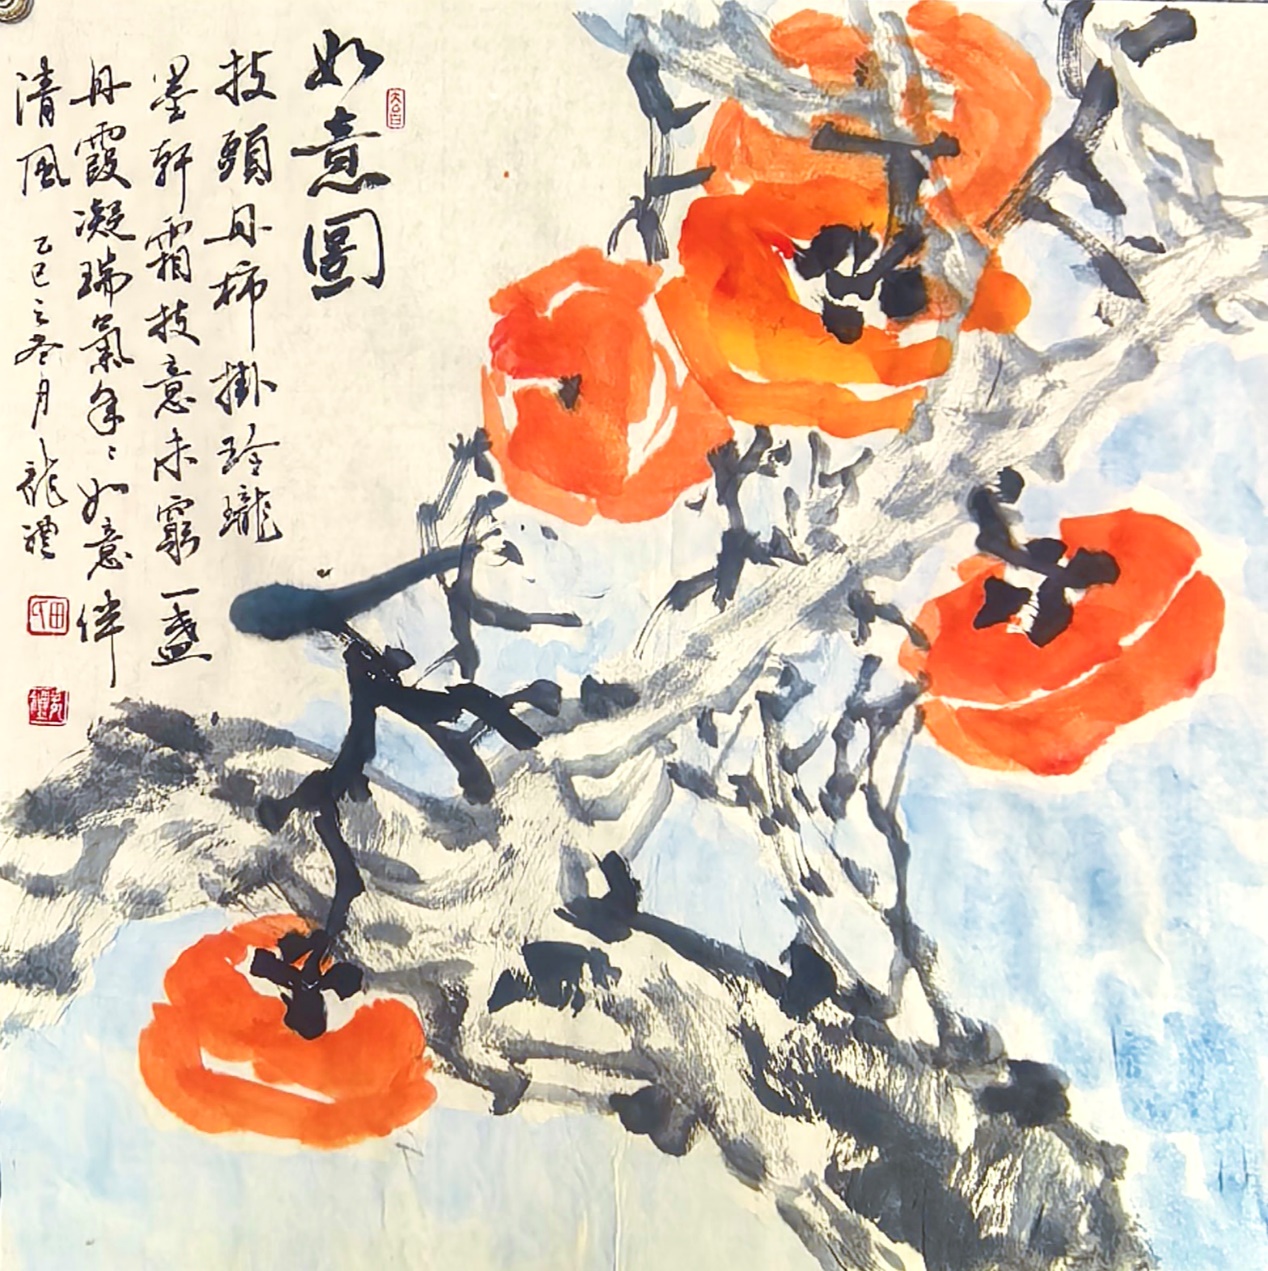 如意圖
技頭丹柿掛玲瓏
墨軒霜技意未窮一盞
丹霞凝瑞氣年〻如意伴
清風 乙巳之冬月 龍禮
田氏